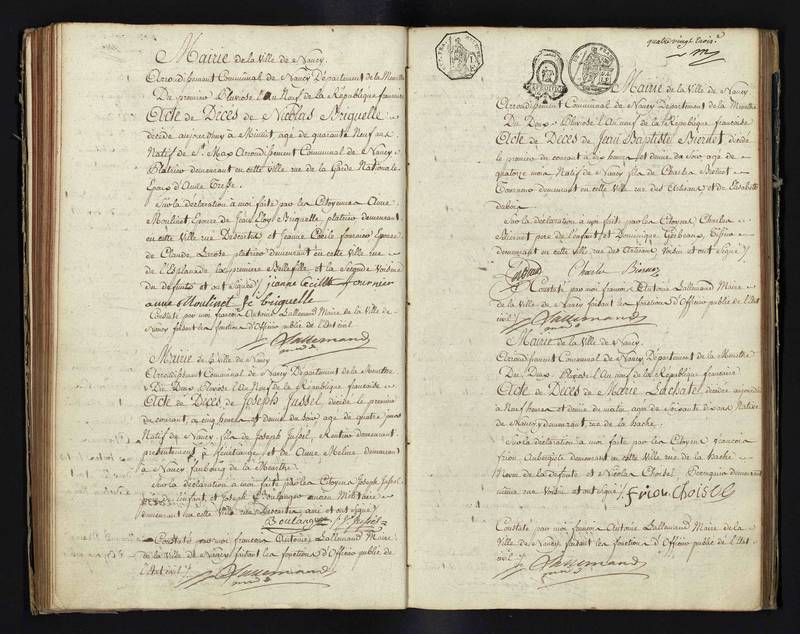 Mairie de la Ville de Nancy.
Arrondissement Communal de Nancy Département de la Meurthe
Du premier Pluviose l'an Neuf de la République francaise
Acte de Décès de Nicolas Briquelle
décédé aujourdhuy à Minuit agé de quarante Neuf ans
Natif de St Max Arrondissement Communal de Nancy
Platrier demeurant en cette Ville rue de la Garde Nationale
Epoux d'Anne Tresse.
Sur la déclaration à moi faite par les Citoyennes Anne
Moulinet, Epouse de Jean Eloy Briquelle, platrier demeurant
en cette Ville rue Descartes et Jeanne Cecile fournier Epouse
de Claude platrier demeurant en cette Ville rue
de l'Esplanade la premiere Bellefille et la Seconde Voisine
du défunt et ont signé /. jeanne Cecille fournier
anne Moulinet fe briquelle
Constaté par moi françois Antoine Lallemand Maire de la Ville de
Nancy faisant les fonctions d'Officier public de l'Etat civil
Lallemand
Mairie de la Ville de Nancy
Arrondissement Communal de Nancy, Département de la Meurthe
Du Deux Pluviose l'An Neuf de la République francaise
Acte de Décès de Joseph Jussel, décédé le premier
du courant, à cinq heures et demie du soir agé de quatre jours
Natif de Nancy, fils de Joseph Jussel, Rentier demeurant
présentement à et de Anne Meline demeurant
à Nancy faubourg de la Meurthe
Sur la déclaration à moi faite par les Citoyens Joseph Jussel
père de l'enfant et Joseph Boulanger ancien Militaire
demeurant en cette Ville rue Descartes ami et ont signé
Boulanger J. Jussel
Constaté par moi francois Antoine Lallemand Maire
de la Ville de Nancy faisant les fonctions d'Officier public de
l'Etat civil /.
Lallemand
quatre vingt trois
Mairie de la Ville de Nancy
Arrondissement Communal de Nancy Département de la Meurthe
Du Deux Pluviose l'An neuf de la République francaise
Acte de Décès de Jean Baptiste Biernet décédé
le premier du courant à six heures et demie du soir agé de
quatorze mois Natif de Nancy fils de Charles Biernet
demeurant en cette Ville rue des Artisans et de Elisabeth
dubois
Sur la déclaration à moi faite par les Citoyens Charles
Biernet père de l'enfant et Dominique
demeurant en cette Ville rue des Artisans Voisin et ont Signé /.
Charle Biernet
Constaté par moi françois Antoine Lallemand Maire
de la Ville de Nancy faisant les fonctions d'Officier public de l'Etat
civil /.
Lallemand
Mairie de la Ville de Nancy.
Arrondissement Communal de Nancy Département de la Meurthe
Du Deux Pluviose l'An neuf de la République francaise
Acte de Décès de Marie Lachatel, décédée aujourdhuy
à Neuf heures et demie du matin agée de Soixante dix ans Native
de Nancy, y demeurant, rue de la hache.
Sur la déclaration à moi faite par les Citoyens francois
friou Aubergiste demeurant en cette Ville rue de la hache
de la défunte et Nicolas Choisel, Perruquier demeurant
même rue Voisin et ont signé /. friou Choisel
Constaté par moi françois Antoine Lallemand Maire de la
Ville de Nancy, faisant les fonctions d'Officier public de l'Etat
civil /.
Lallemand